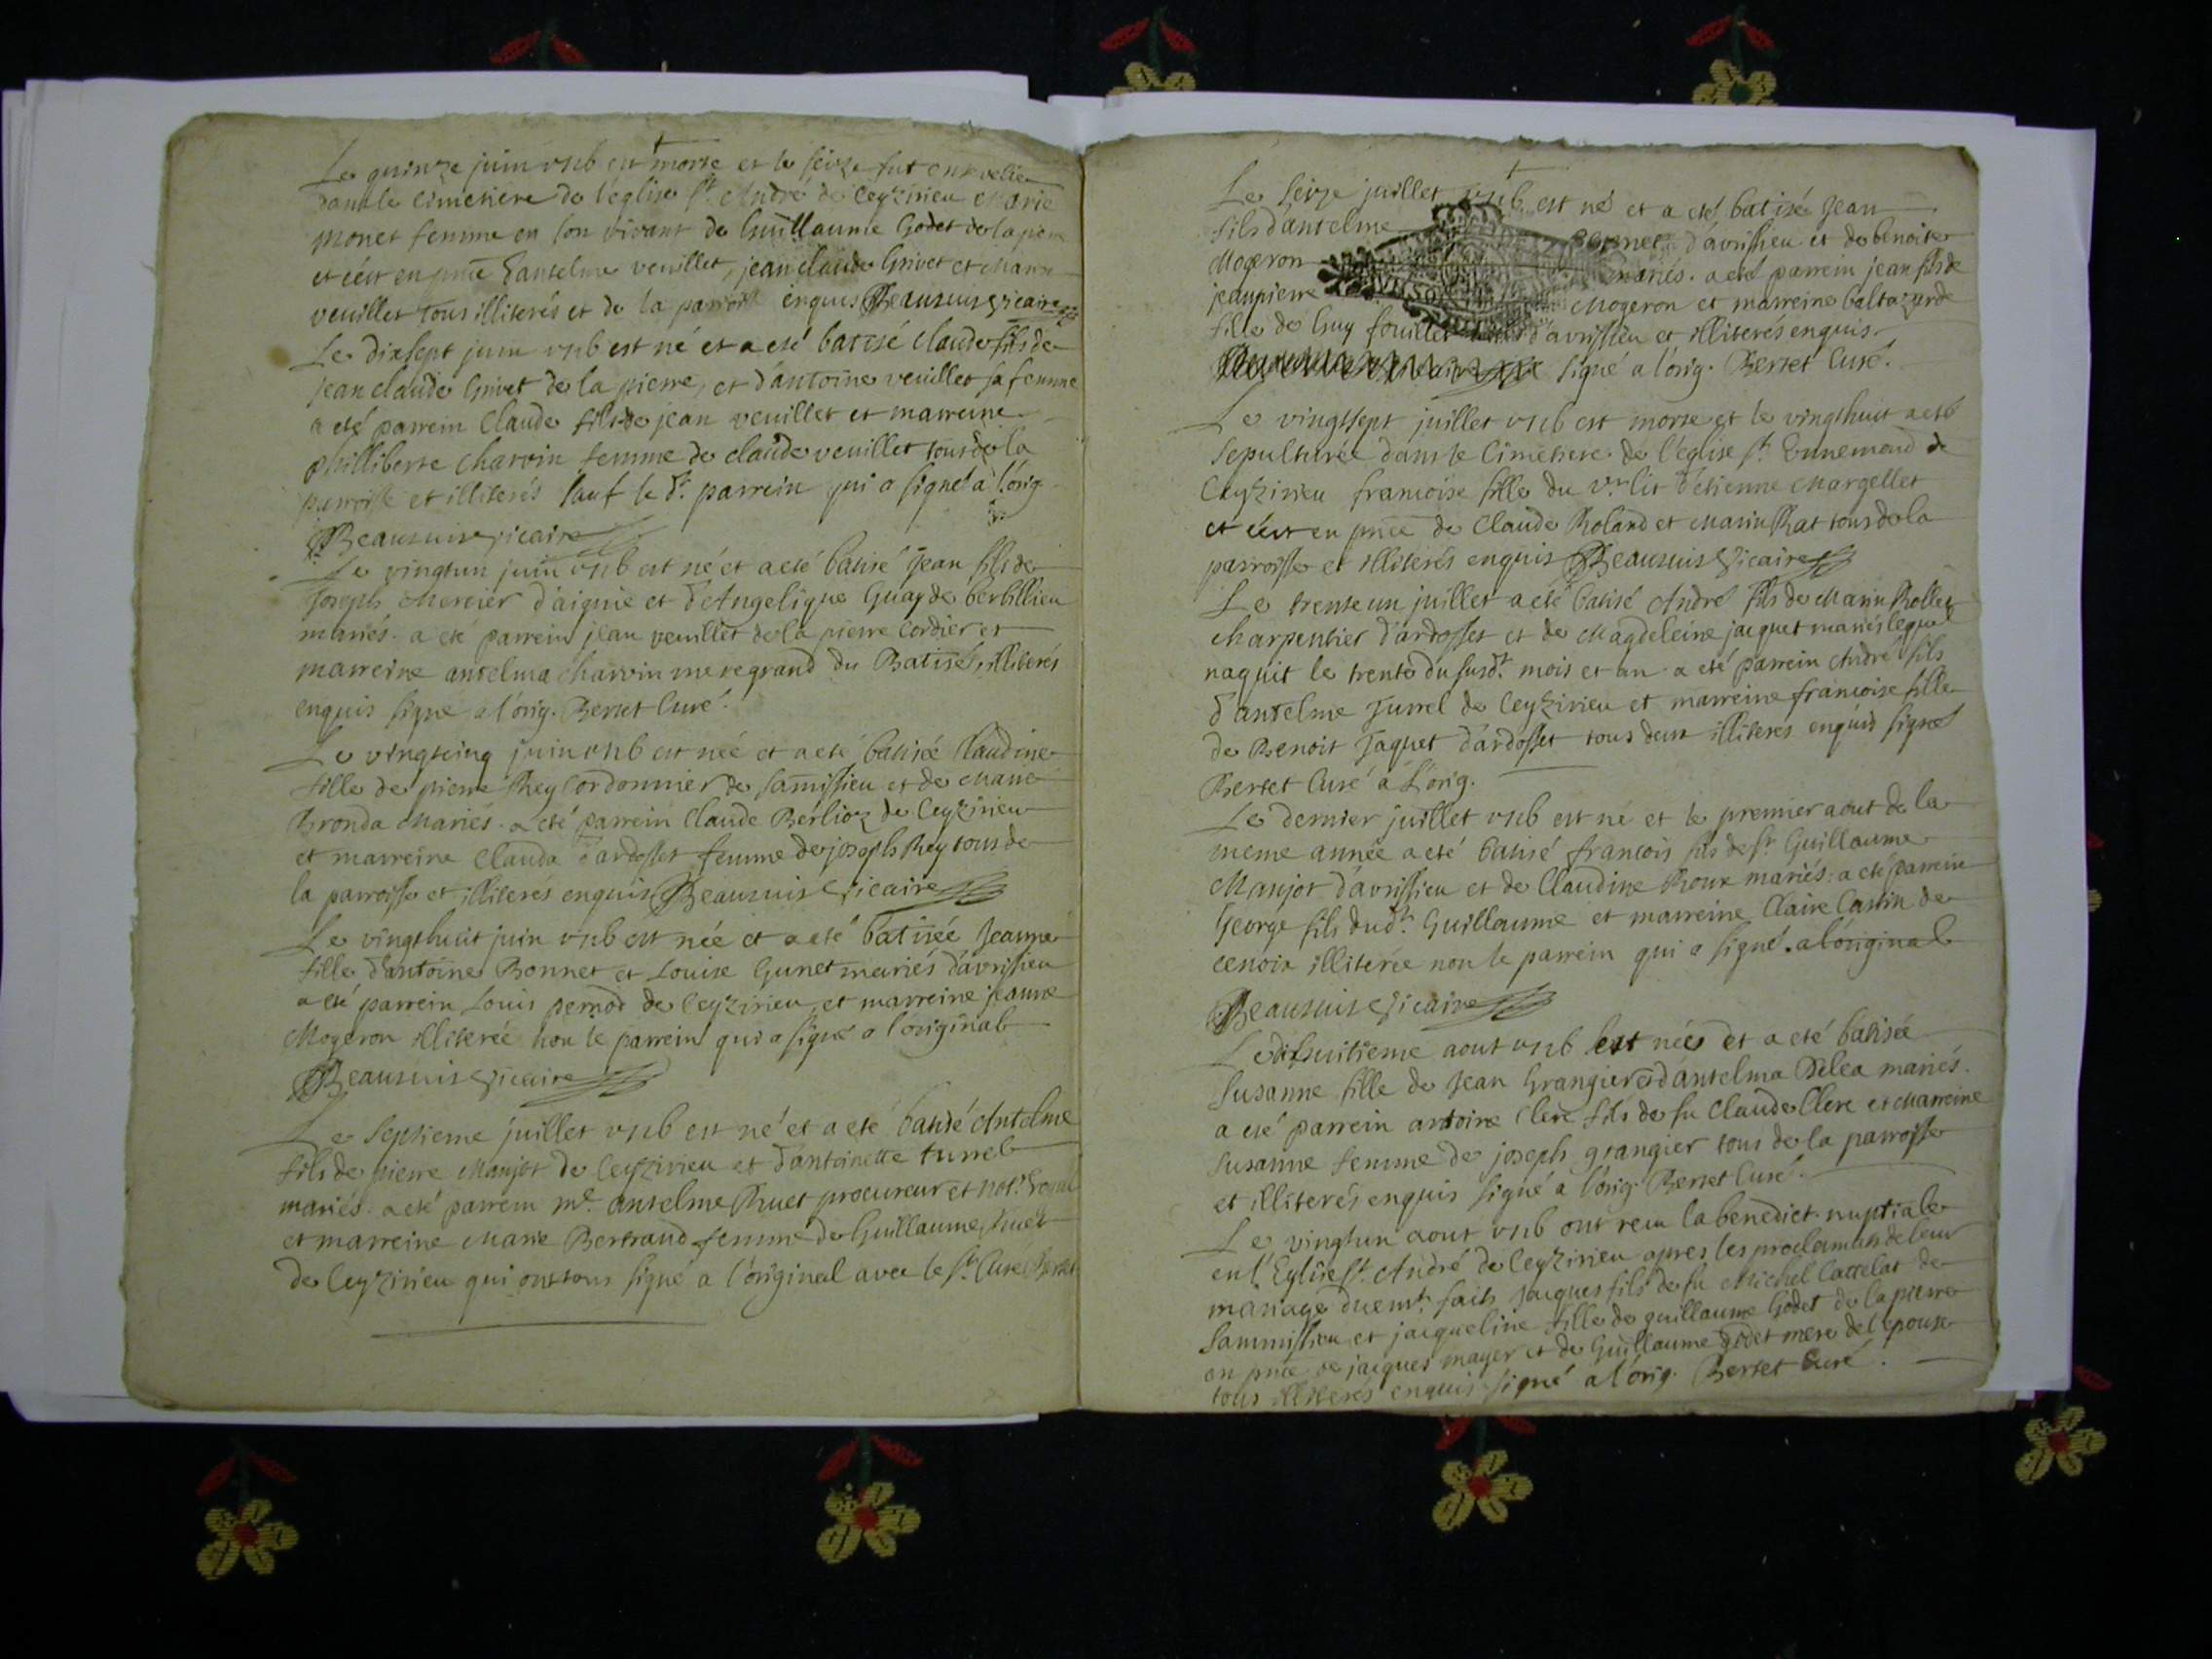 †
Le quinze juin 1716 est morte et le seize fut ensevelie
dans le cimetiere de l'eglise St. André de Ceyzirieu Marie
monet femme en son vivant de Guillaume Godet de la pierre
et c'est en pnce d'antelme veuillet, jean claude Grivet et Marin
veuillet tous illiterés et de la parroisse enquis Beausuis vicaire
Le dixsept juin 1716 est né et a eté batisé Claude fils de
jean claude Grivet de la pierre, et d'antoine veuillet sa femme
a eté parrein Claude fils de jean veuillet et marreine
philliberte Charvin femme de claude veuillet tous de la
parroisse et illiterés sauf le dt. parrein qui a signé a l'orig.
Beausuis vicaire
Le vingtun juin 1716 est né et a eté batisé Jean fils de
Joseph Mercier d'aignie et d'Angelique Guay de berbillieu
mariés. a eté parrein jean veuillet de la pierre cordier et
marreine antelma Charvin mere grand du Batisé, illiterés
enquis signé a l'orig. Berret Curé.
Le vingtcinq juin 1716 est née et a eté batisée Claudine
fille de pierre Rey cordonnier de samissieu et de Marie
Bronda Mariés. a eté parrein Claude Berlioz de Ceyzirieu
et marreine Clauda d'ardosset femme de joseph Rey tous de
la parroisse et illiterés enquis Beausuis vicaire
Le vingthuit juin 1716 est née et a eté batisée Jeanne
fille d'antoine Bonnet et Louise Gunet mariés d'avrissieu
a eté parrein Louis pernod de Ceyzirieu, et marreine jeanne
Mogeron illiterée non le parrein qui a signé a l'original
Beausuis vicaire
Le septieme juillet 1716 est né et a eté batisé Antelme
fils de pierre Manjot de Ceyzirieu et d'antoinette turrel
mariés. a eté parrein me. antelme Ruet procureur et not. royal
et marreine Marie Bertrand femme de Guillaume Ruet
de Ceyzirieu qui ont tous signé a l'original avec le sr. Curé Berret
†
Le seize juillet 1716 est né et a eté batisé Jean
fils d'antelme Bonnet d'avrissieu et de benoite
Mogeron mariés. a eté parrein jean fils de
jeanpierre Mogeron et marreine baltazarde
fille de Guy fouillet d'avrissieu et illiterés enquis.
signé a l'orig. Berret Curé.
Le vingtsept juillet 1716 est morte et le vingthuit a eté
sepulturée dans le cimetiere de l'église St. Ennemond de
Ceyzirieu francoise fille du vn lit d'etienne Margellet
et c'est en pnce de Claude Roland et Marin Rat tous de la
parroisse et illiterés enquis Beausuis vicaire
Le trenteun juillet a eté batisé André fils de Marin Rollet
Charpentier d'ardosset et de Magdeleine jacquet mariés lequel
naquit le trente du susdt. mois et an. a eté parrein André fils
d'antelme Jurrel de Ceyzirieu et marreine francoise fille
de Benoit Jaquet d'ardosset tous deux illiterés enquis signé
Berret Curé a l'orig.
Le dernier juillet 1716 est né et le premier aout de la
meme année a eté batisé francois fils de sr Guillaume
Manjot d'avrissieu et de Claudine Roux mariés: a eté parrein
George fils dudt. Guillaume et marreine Claire Castin de
cenoix illiterée non le parrein qui a signé. a l'original
Beausuis vicaire
Le dixhuitieme aout 1716 est née et a eté batisée
Susanne fille de Jean Grangier et d'antelma Delea mariés.
a eté parrein antoine Clerc fils de fu Claude Clerc et Marreine
Susanne femme de joseph grangier tous de la parroisse
et illiterés enquis signé a l'orig. Berret Curé.
Le vingtun aout 1716 ont receu la benedict. nuptiale
en l'Eglise St. André de Ceyzirieu apres les proclamats de leur
mariage duemt. faits Jacques fils de fu Michel Cattelat de
Sammissieu et jacqueline fille de guillaume Godet de la pierre
en pnce de jacques mayer et de Guillaume Godet mere de l'epouse
tous illiterés enquis signé a l'orig. Berret Curé.